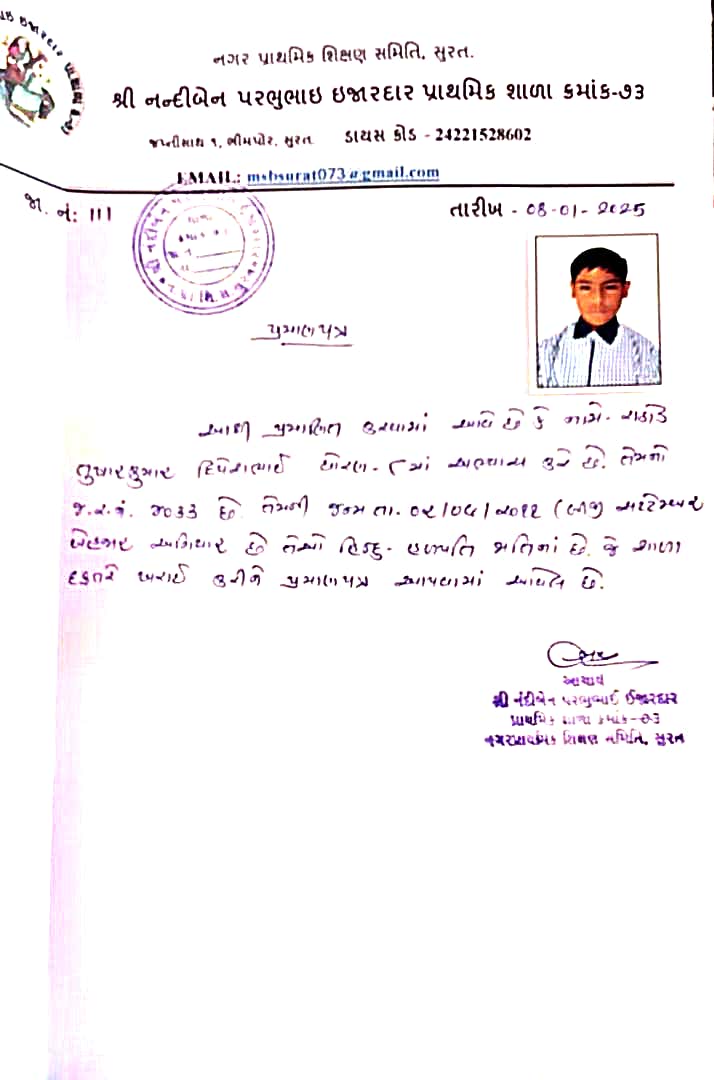 નગર પ્રાથમિક શિક્ષણ સમિતિ, સુરત.
શ્રી નન્દીબેન પરભુભાઇ ઇજારદાર પ્રાથમિક શાળા ક્રમાંક-૭૩
ભીમપોર, સુરત. ડાયસ કોડ - 24221528602
EMAIL: msbsurat073@gmail.com
જા. નં: 111
તારીખ - 08-01-2025
પ્રમાણપત્ર
આથી પ્રમાણિત કરવામાં આવે છે કે નામે- રાઠોડ
તુષારકુમાર દિપેશભાઈ ધોરણ - ૮ માં અભ્યાસ કરે છે. તેમનો
જ.ર.નં. ૭૦૩૩ છે. તેમની જન્મ તા. (બીજી સપ્ટેમ્બર
બેહજાર અગિયાર છે તેઓ હિન્દુ- હળપતિ જાતિનાં છે. જે શાળા
દફતરે ખરાઈ કરીને પ્રમાણપત્ર આપવામાં આવેલ છે.
આચાર્ય
શ્રી નંદીબેન પરભુભાઈ ઈજારદાર
પ્રાથમિક શાળા ક્રમાંક-૭૩
નગર પ્રાથમિક શિક્ષણ સમિતિ, સુરત